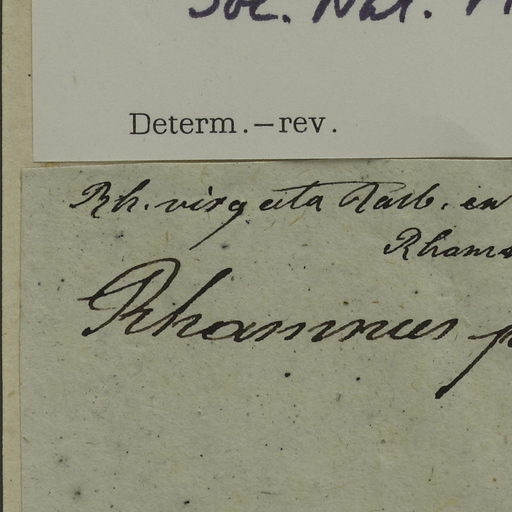 Soc. Nat.
Determ.—rev.
Rh. virgata Roxb. en
Rhamn
Rhamnus p